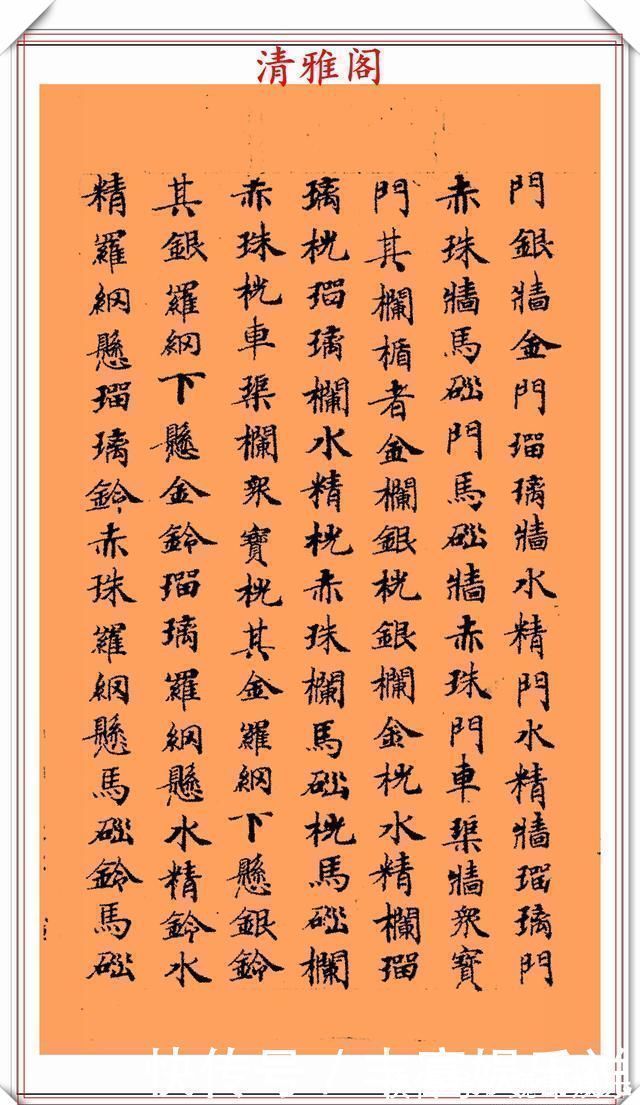 清雅阁
門銀牆金門瑠璃牆水精門水精牆瑠璃門
赤珠牆馬碯門馬碯牆赤珠門車渠牆眾寶
門其欄楯者金欄銀桄銀欄金桄水精欄瑠
璃桄瑠璃欄水精桄赤珠欄馬碯桄馬碯欄
赤珠桄車渠欄眾寶桄其金羅網下懸銀鈴
其銀羅網下懸金鈴瑠璃羅網懸水精鈴水
精羅網懸瑠璃鈴赤珠羅網懸馬碯鈴馬碯
快传号 /